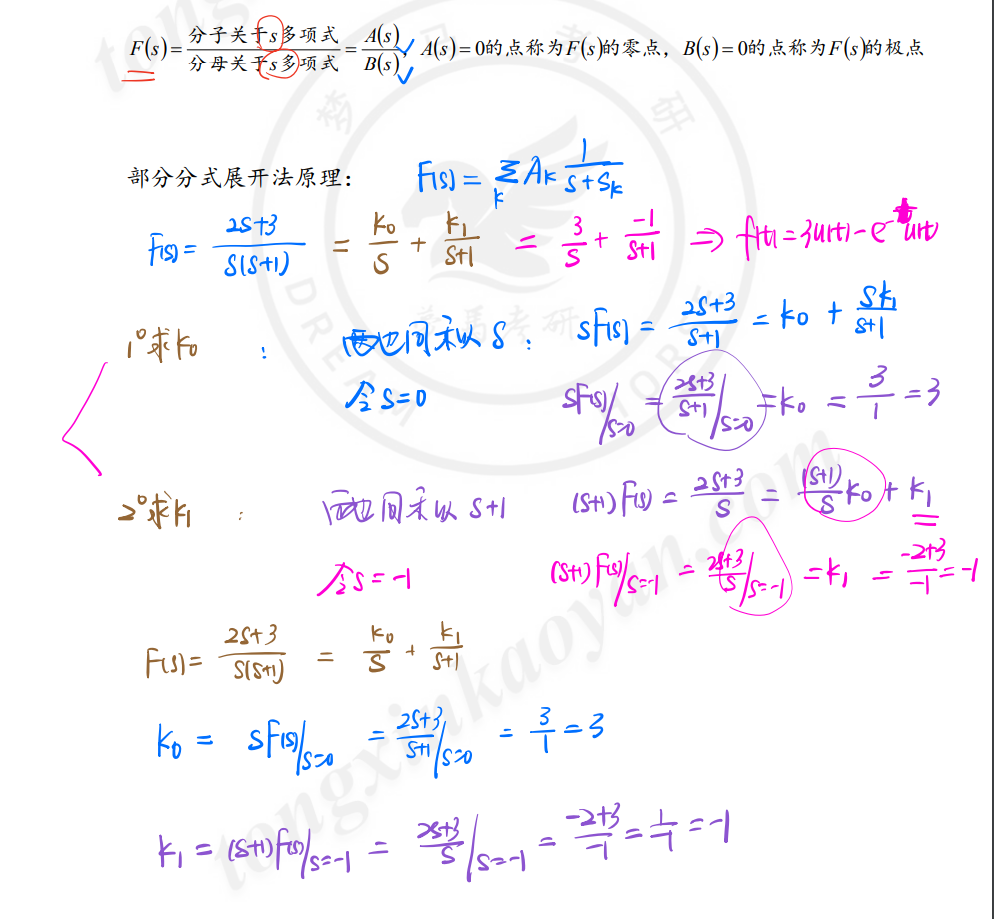 F(s)=分子关于s多项式/分母关于s多项式=A(s)/B(s),A(s)=0的点称为F(s)的零点，B(s)=0的点称为F(s)的极点
部分分式展开法原理： F(s)=∑_k A_k 1/(s+s_k)
F(s)= (2s+3)/(s(s+1)) = k₀/s + k₁/(s+1) = 3/s + -1/(s+1) ⇒ f(t)=3u(t)-e^{-t}u(t)
1°求k₀ : 两边同乘以s： sF(s)= (2s+3)/(s+1) = k₀ + sk₁/(s+1)
令s=0 sF(s)/s=0 = (2s+3)/(s+1)/s=0 =k₀ = 3/1 =3
2°求k₁ : 两边同乘以s+1 (s+1)F(s) = (2s+3)/s = (s+1)/s k₀ + k₁
令s=-1 (s+1)F(s)/s=-1 = (2s+3)/s/s=-1 =k₁ = (-2+3)/-1 =-1
F(s)= (2s+3)/(s(s+1)) = k₀/s + k₁/(s+1)
k₀ = sF(s)/s=0 = (2s+3)/(s+1)/s=0 = 3/1 =3
k₁ = (s+1)F(s)/s=-1 = (2s+3)/s/s=-1 = (-2+3)/-1 = 1/-1 =-1
tongxinkaoyan.com